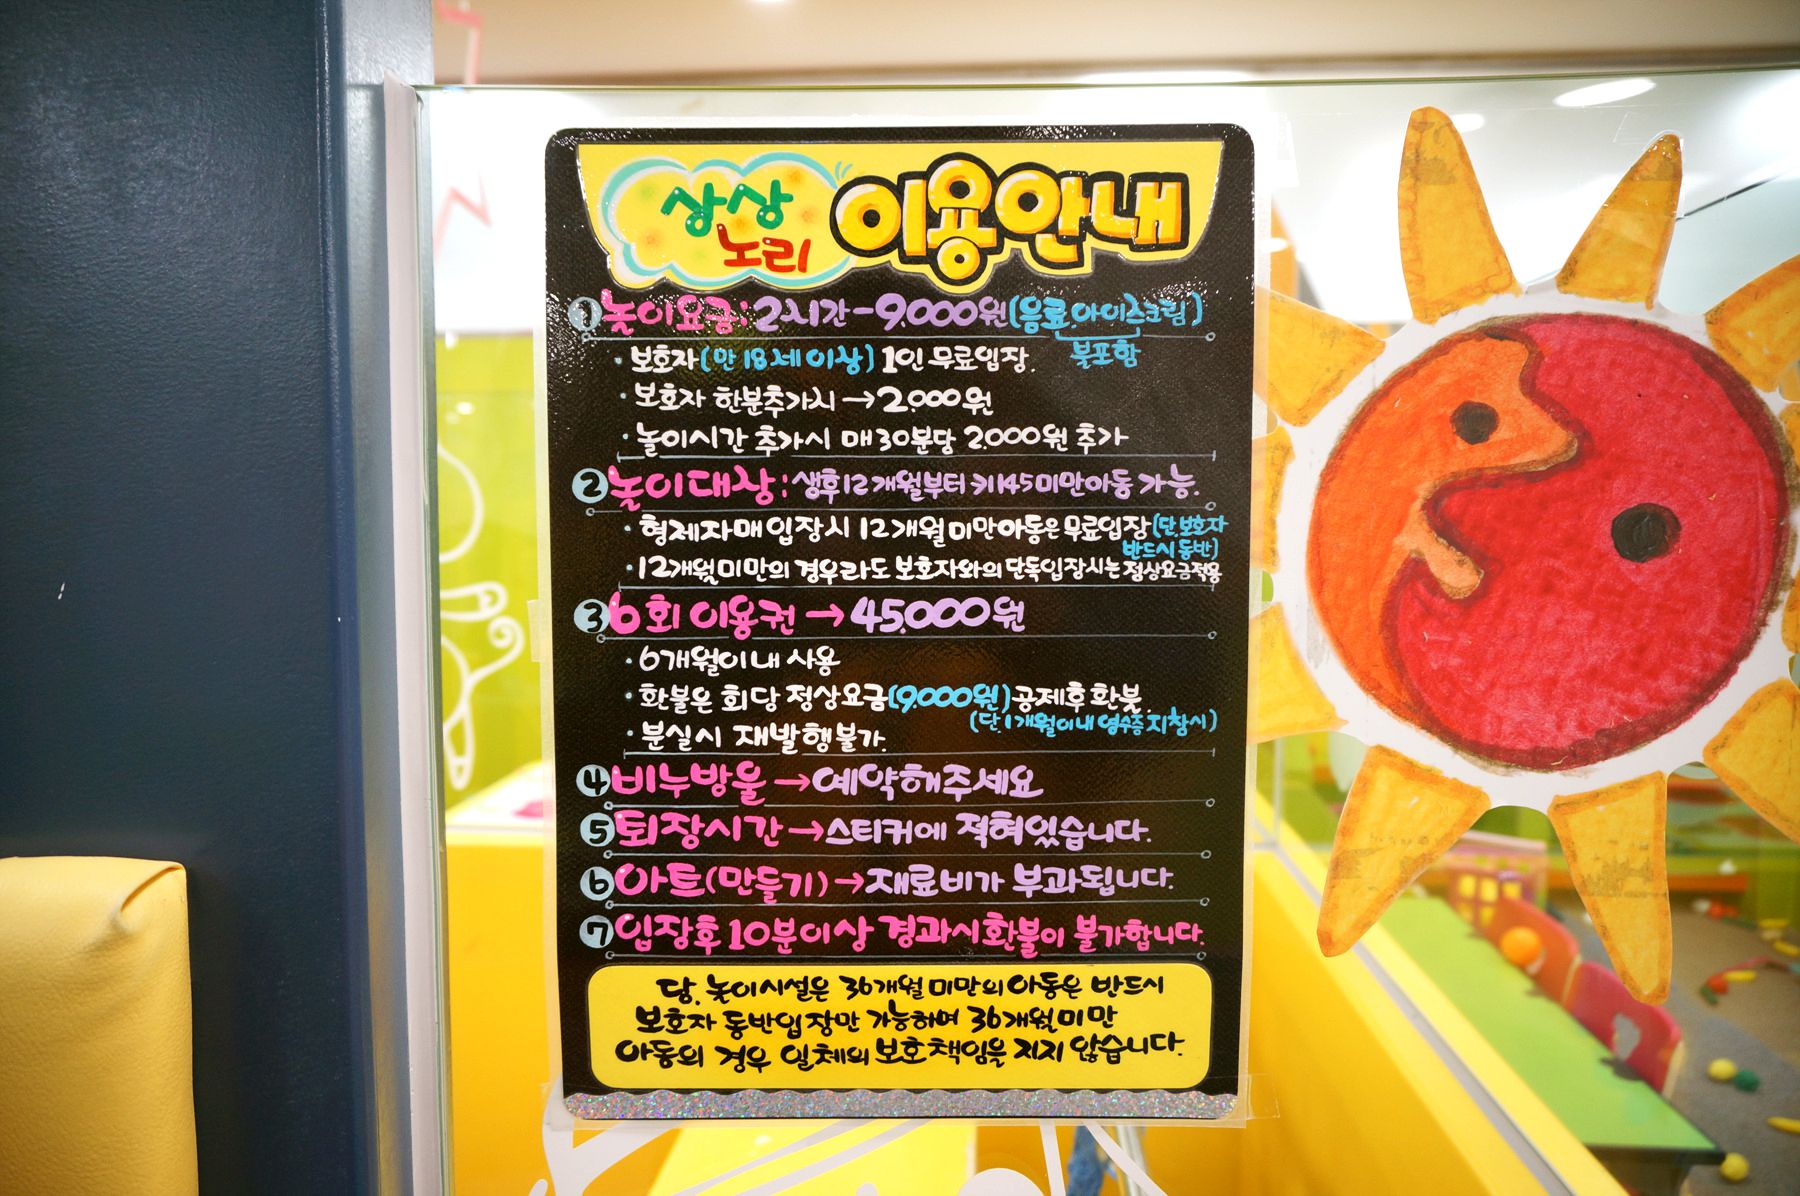 상상
노리
이용안내
① 놀이요금: 2시간-9,000원(음료,아이스크림)
불포함
· 보호자(만 18세 이상) 1인 무료입장.
· 보호자 한분추가시→2,000원
· 놀이시간 추가시 매30분당 2,000원 추가
② 놀이대상: 생후12개월부터 키145미만아동 가능.
· 형제자매 입장시 12개월미만아동은 무료입장(단,보호자
반드시동반)
· 12개월미만의 경우라도 보호자와의 단독입장시는 정상요금적용
③ 6회 이용권 → 45,000원
· 6개월이내 사용
· 환불은 회당 정상요금(9,000원)공제후 환불.
(단,1개월이내 영수증 지참시)
· 분실시 재발행불가.
④ 비누방울→예약해주세요
⑤ 퇴장시간→스티커에 적혀있습니다.
⑥ 아트(만들기)→재료비가 부과됩니다.
⑦ 입장후 10분이상 경과시환불이 불가합니다.
당. 놀이시설은 36개월미만의아동은 반드시
보호자 동반입장만 가능하며 36개월미만
아동의 경우 일체의 보호책임을 지지 않습니다.